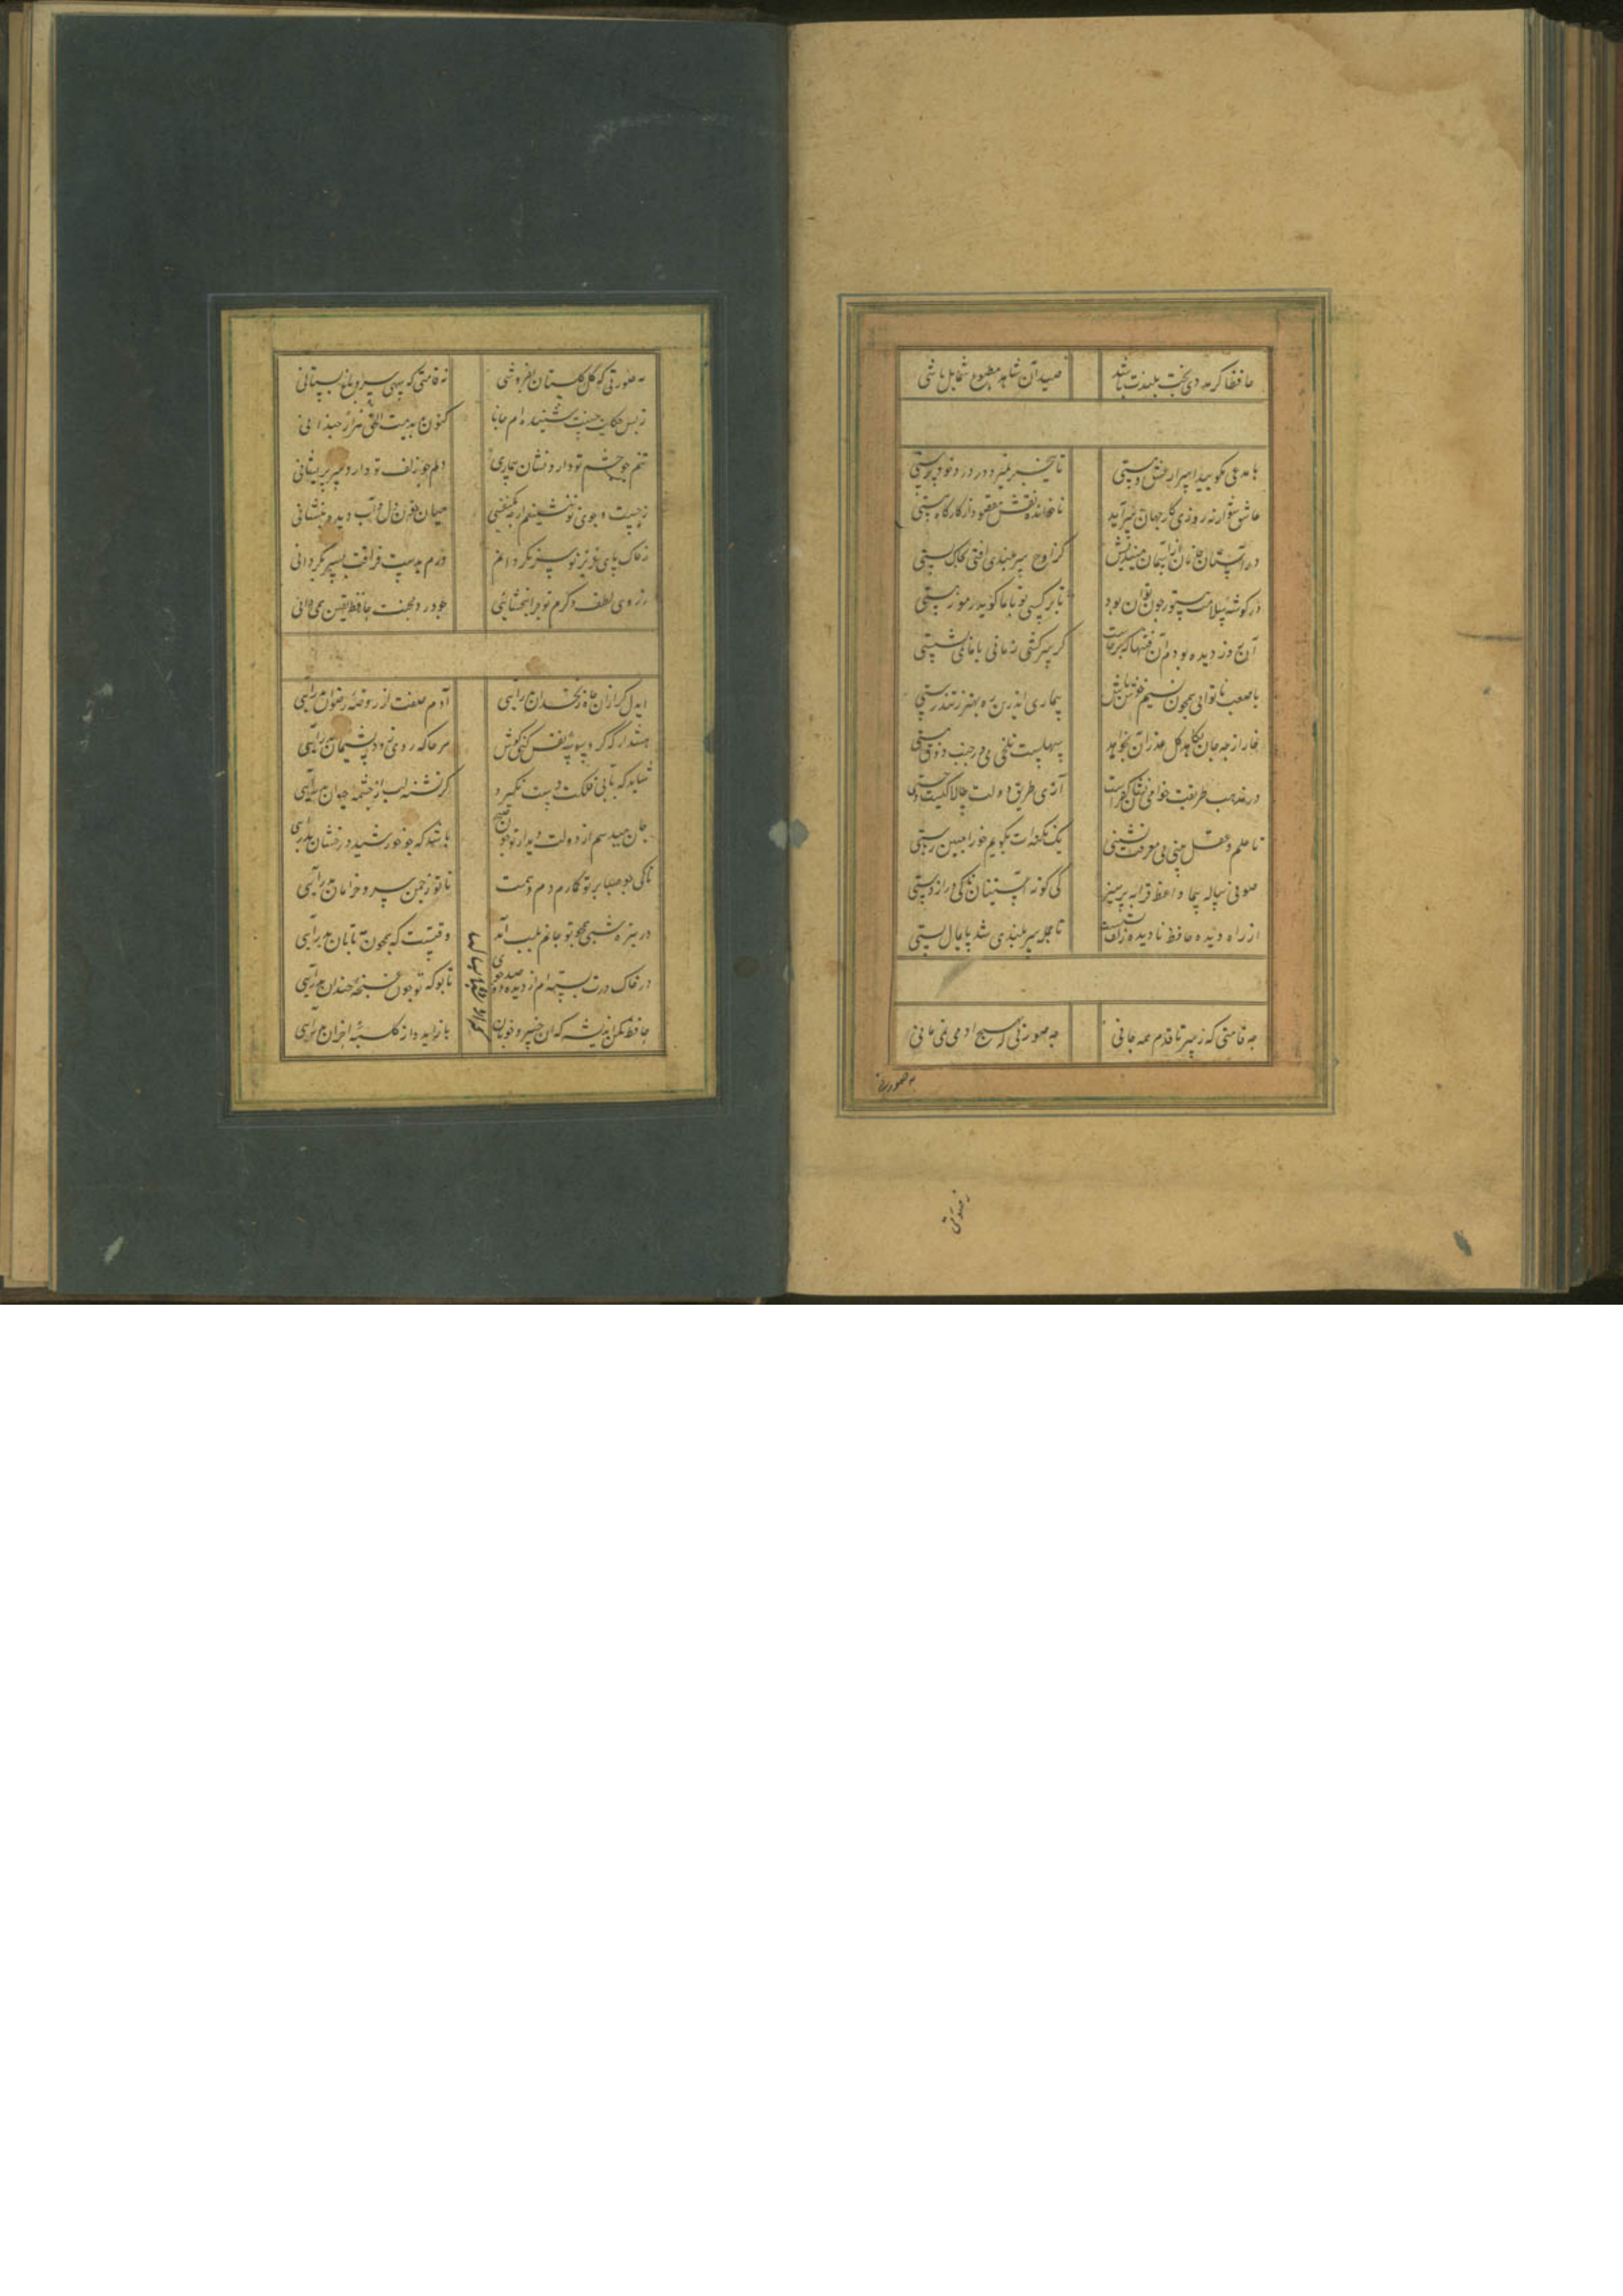 حافظا گر مدد از بخت بلندت باشد صید آن شاهد مطبوع شمایل باشی
با مدعی مگویید اسرار عشق و مستی تا بیخبر بمیرد در درد خودپرستی
عاشق شو ار نه روزی کار جهان سر آید ناخوانده نقش مقصود از کارگاه هستی
در آستان جانان از آسمان میندیش کز اوج سربلندی افتی بخاک پستی
در گوشه سلامت مستور چون توان بود تا نرگس تو با ما گوید رموز مستی
آن روز دیده بودم آن فتنها که برخاست کز سرکشی زمانی با ما نمی نشستی
با ضعف ناتوانی همچون نسیم خوش باش بیماری اندرین ره بهتر ز تندرستی
خار ار چه جان بکاهد گل عذر آن بخواهد سهلست تلخی می در جنب ذوق مستی
در مذهب طریقت خامی نشان کفرست آری طریق دولت چالاکیست و چستی
تا علم و عقل بینی بی معرفت نشینی یک نکته ات بگویم خود را مبین رستی
صوفی پیاله پیما واعظ قرابه پرهیز ای کوته آستینان تا کی دراز دستی
از راه دیده حافظ نا دیده زلف پستت تا جمله سربلندی شد پایمال پستی
چه قامتی که ز سر تا قدم همه جانی چه صورتی که بهیچ آدمی نمی مانی
به صورتی
به صورتی که گل گلستان بفروشی نه قامتی که سهی سرو باغ بستانی
ز بس حکایت حسنت شنیده ام جانا کنون بدیدمت الحق هزار چندانی
تنم چو چشم تو دارد نشان بیماری دلم چو زلف تو دارد سر پریشانی
ز جست و جوی تو ننشینم ار یک نفسی میان خون دل و آب دیده بنشانی
ز خاک پای عزیز تو سر نگردانم ورم بدست فراقت بسر بگردانی
ز روی لطف و کرم تو چرا نبخشائی چو درد محنت حافظ یقین همی دانی
ایدل گر از آن چاه زنخدان بدرآیی آدم صفت از روضه رضوان بدرآیی
هشدار که گر وسوسه نفس کنی گوش هر جا که روی زود پشیمان بدرآیی
شاید که بآبی فلکت دست نگیرد گر تشنه لب از چشمه حیوان بدرآیی
جان میدهم از دولت دیدار تو چون صبح باشد که چو خورشید درخشان بدرآیی
تا کی چو صبا بر تو گمارم دم همت تا تو ز چمن سرو خرامان بدرآیی
در تیره شب هجر تو جانم بلب آمد وقتست که همچون مه تابان بدرآیی
در خاک درت بسته ام از دیده دو صد جوی تا بو که تو چون غنچه خندان بدرآیی
حافظ مکن اندیشه که آن خسرو خوبان باز آید و از کلبه احزان بدرآیی